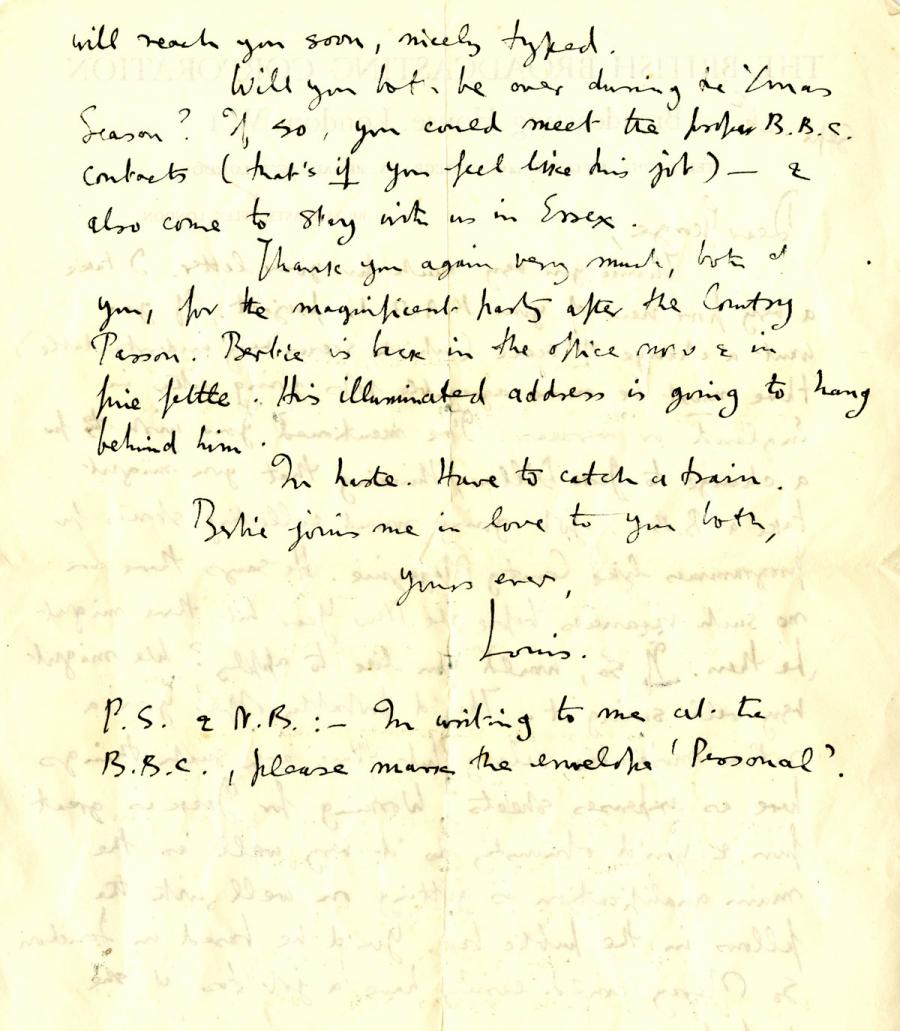 will reach you soon, nicely typed.
Will you both be over during the Xmas
Season? If so, you could meet the proper B.B.C.
contacts (that's if you feel like this job) — &
also come to stay with us in Essex.
Thank you again very much, both of
you, for the magnificent party after the Country
Parson. Bertie is back in the office now & in
fine fettle. His illuminated address is going to hang
behind him.
In haste. Have to catch a train.
Bertie joins me in love to you both,
Yours ever,
Louis.
P.S. & N.B.:— In writing to me at the
B.B.C., please mark the envelope 'Personal'.